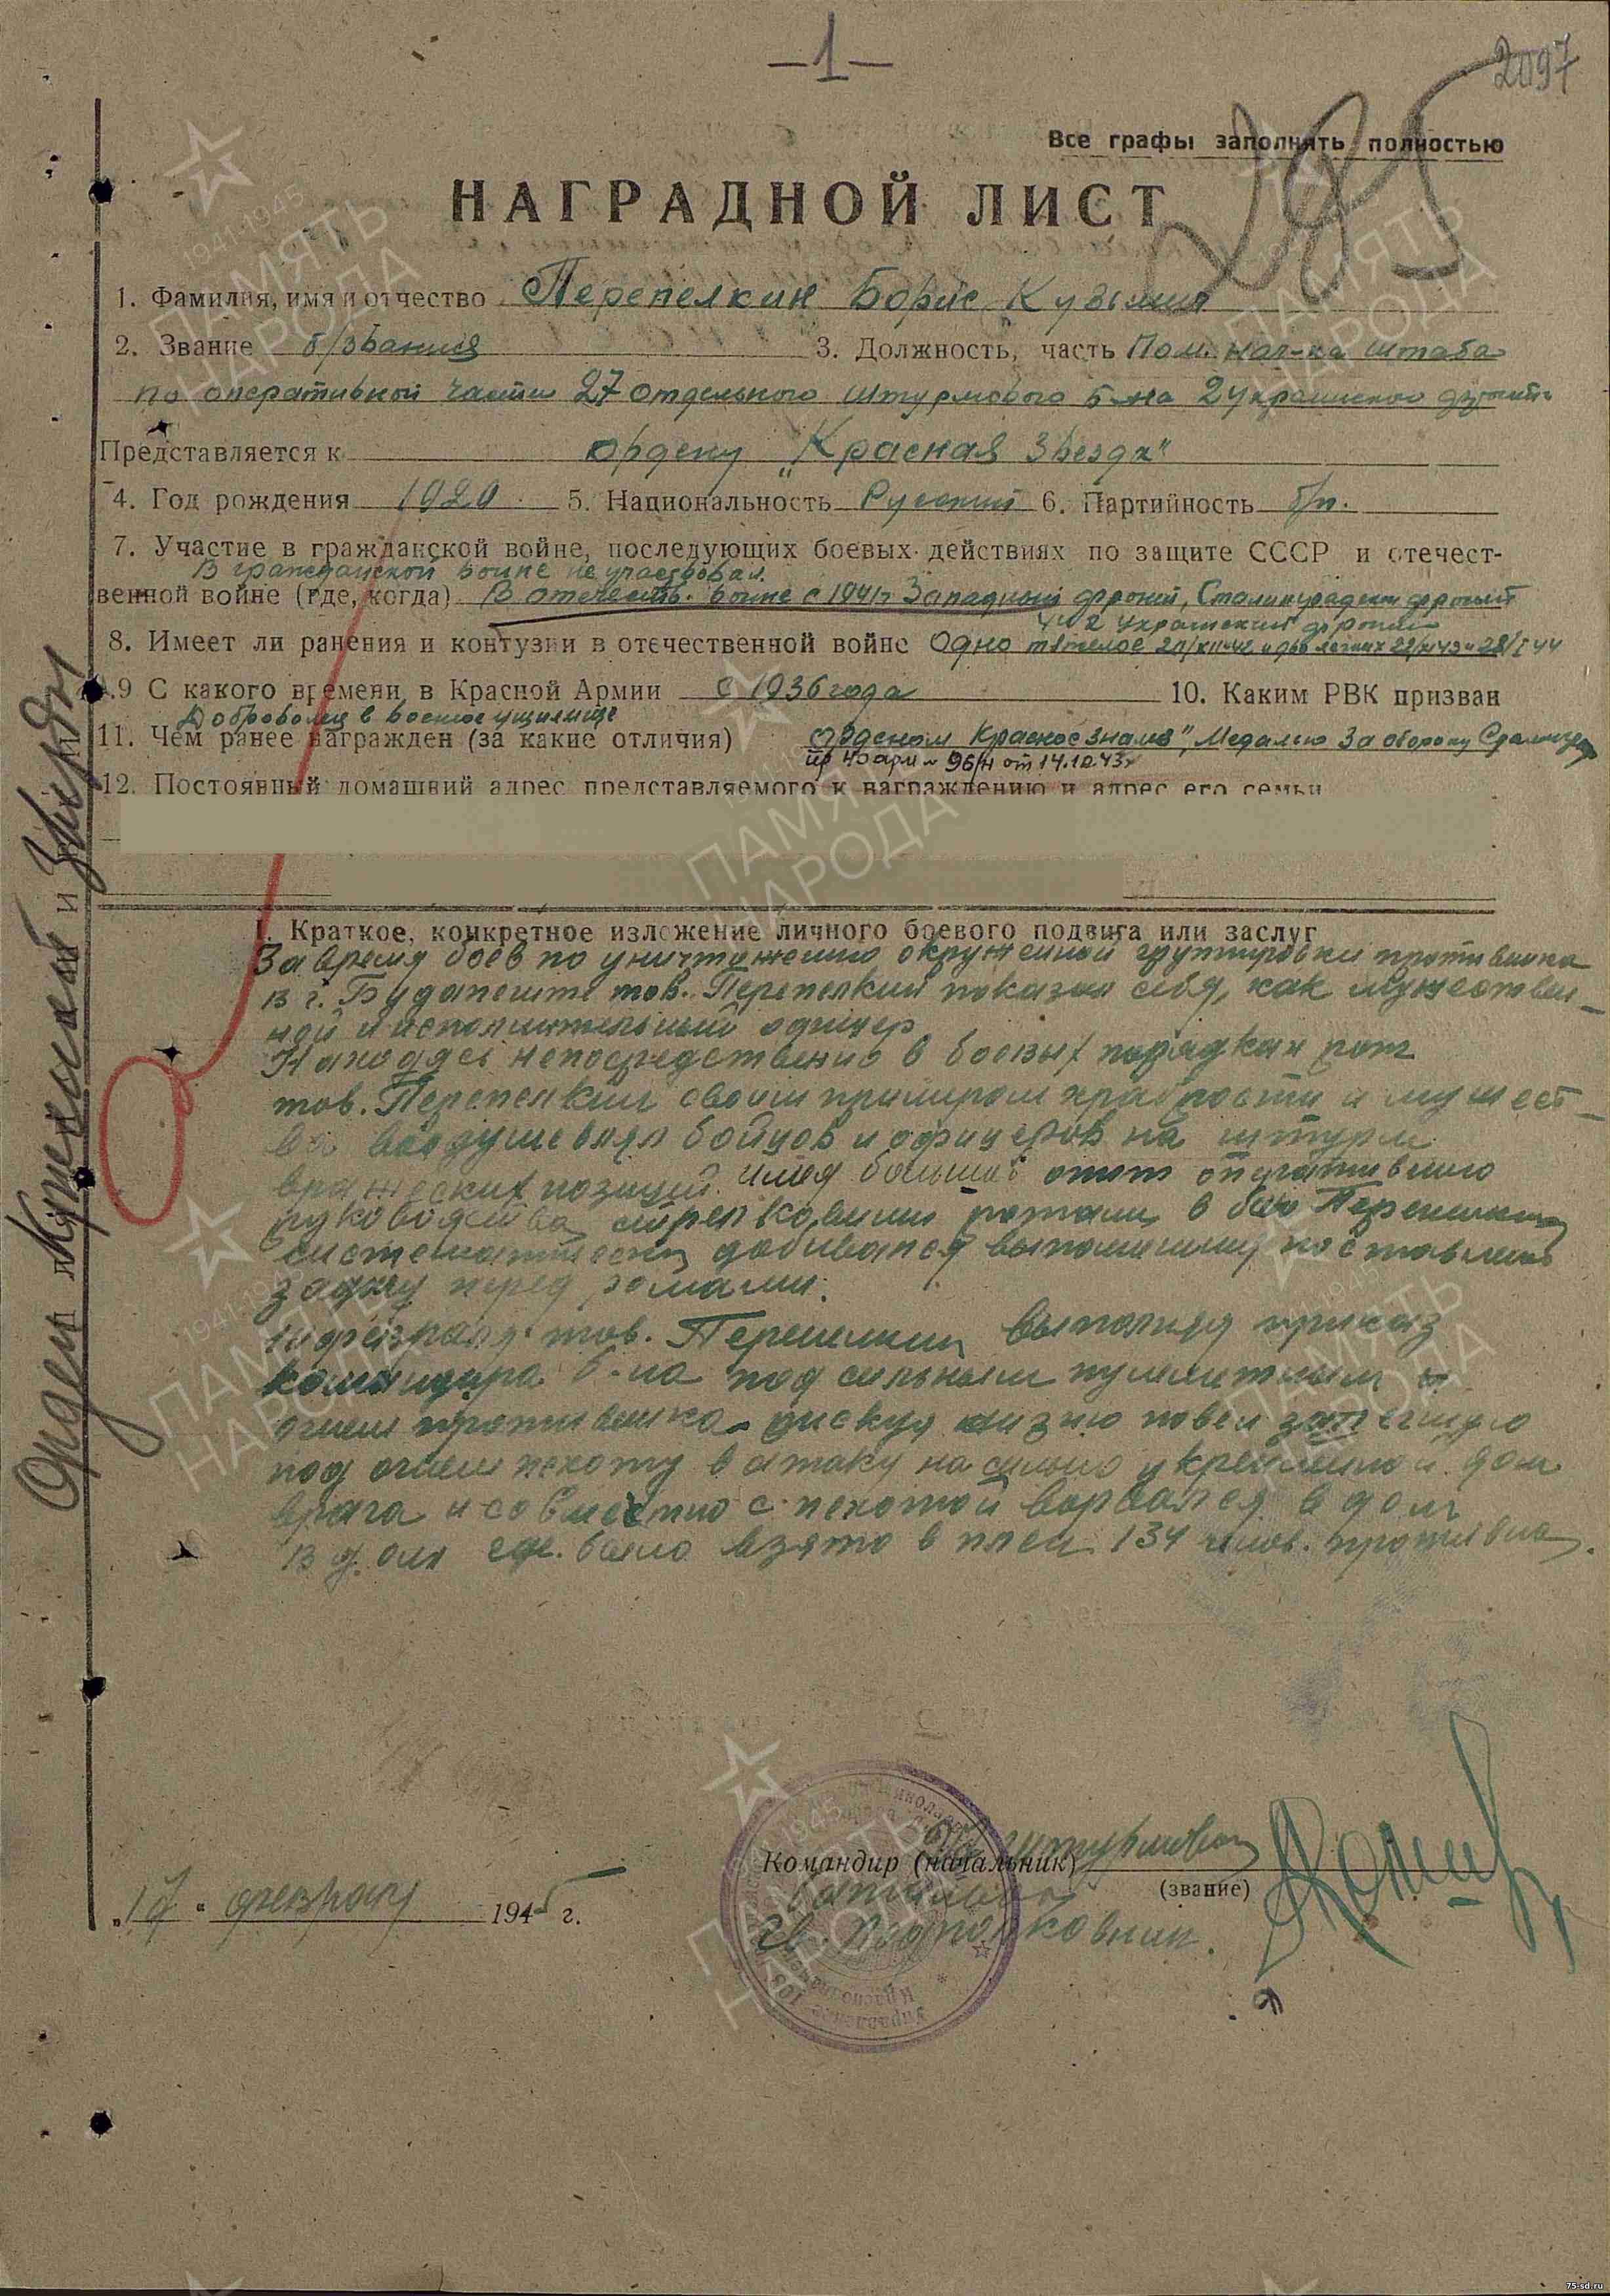 —1—
2097
Все графы заполнять полностью
НАГРАДНОЙ ЛИСТ
1. Фамилия, имя и отчество Перепелкин Борис Кузьмич
2. Звание б/звания 3. Должность, часть Пом. нач-ка штаба
по оперативной части 27 отдельного штурмового б-на 2 Украинского
Представляется к ордену „Красная Звезда"
4. Год рождения 1920. 5. Национальность Русский 6. Партийность б/п.
7. Участие в гражданской войне, последующих боевых действиях по защите СССР и отечест-
В гражданской войне не участвовал.
венной войне (где, когда) В отечеств. войне с 1941г Западный фронт, Сталинградский фронт
4 и 2 Украинский фронт
8. Имеет ли ранения и контузии в отечественной войне Одно тяжелое и два легких
9 С какого времени в Красной Армии с 1936 года 10. Каким РВК призван
Доброволец в военное училище
11. Чем ранее награжден (за какие отличия) орденом Красное знамя", Медалью За оборону
пр 96/н от 14.10.43г
12. Постоянный домашний адрес представляемого к награждению и адрес его семьи
I. Краткое, конкретное изложение личного боевого подвига или заслуг
За время боев по уничтожению окруженной группировки противника
в г. Будапеште тов. Перепелкин показал себя, как мужествен-
ный и исполнительный офицер.
Находясь непосредственно в боевых порядках рот
тов. Перепелкин своим примером храбрости и мужест-
ва воодушевлял бойцов и офицеров на штурм
вражеских позиций. Имея большой опыт оперативного
руководства стрелковыми ротами, в бою Перепелкин
систематически добивался выполнения поставленных
задач перед ротами.
февраля тов. Перепелкин выполняя приказ
командира б-на под сильным пулеметным
огнем противника рискуя жизнью повел залегшую
под огнем пехоту в атаку на сильно укрепленный дом
врага и совместно с пехотой ворвался в дом
В доме было взято в плен 134 челов. противника.
Орден Красной Звезды
Командир (начальник) штурмового
(звание)
батальона
гв. подполковник.
февраля 1945 г.
1941-1945
ПАМЯТЬ
НАРОДА
75-sd.ru